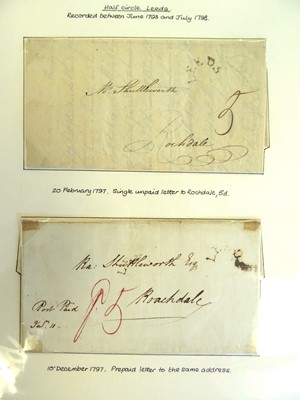 Half circle Leeds
Recorded between June 1793 and July 1798.
LEEDS
Mr Shuttleworth
5
Rochdale
20 February 1797. Single unpaid letter to Rochdale, 5d.
LEEDS
Ra: Shuttleworth Esq
Post Paid
P. 5
Roachdale
15 December 1797. Prepaid letter to the same address.